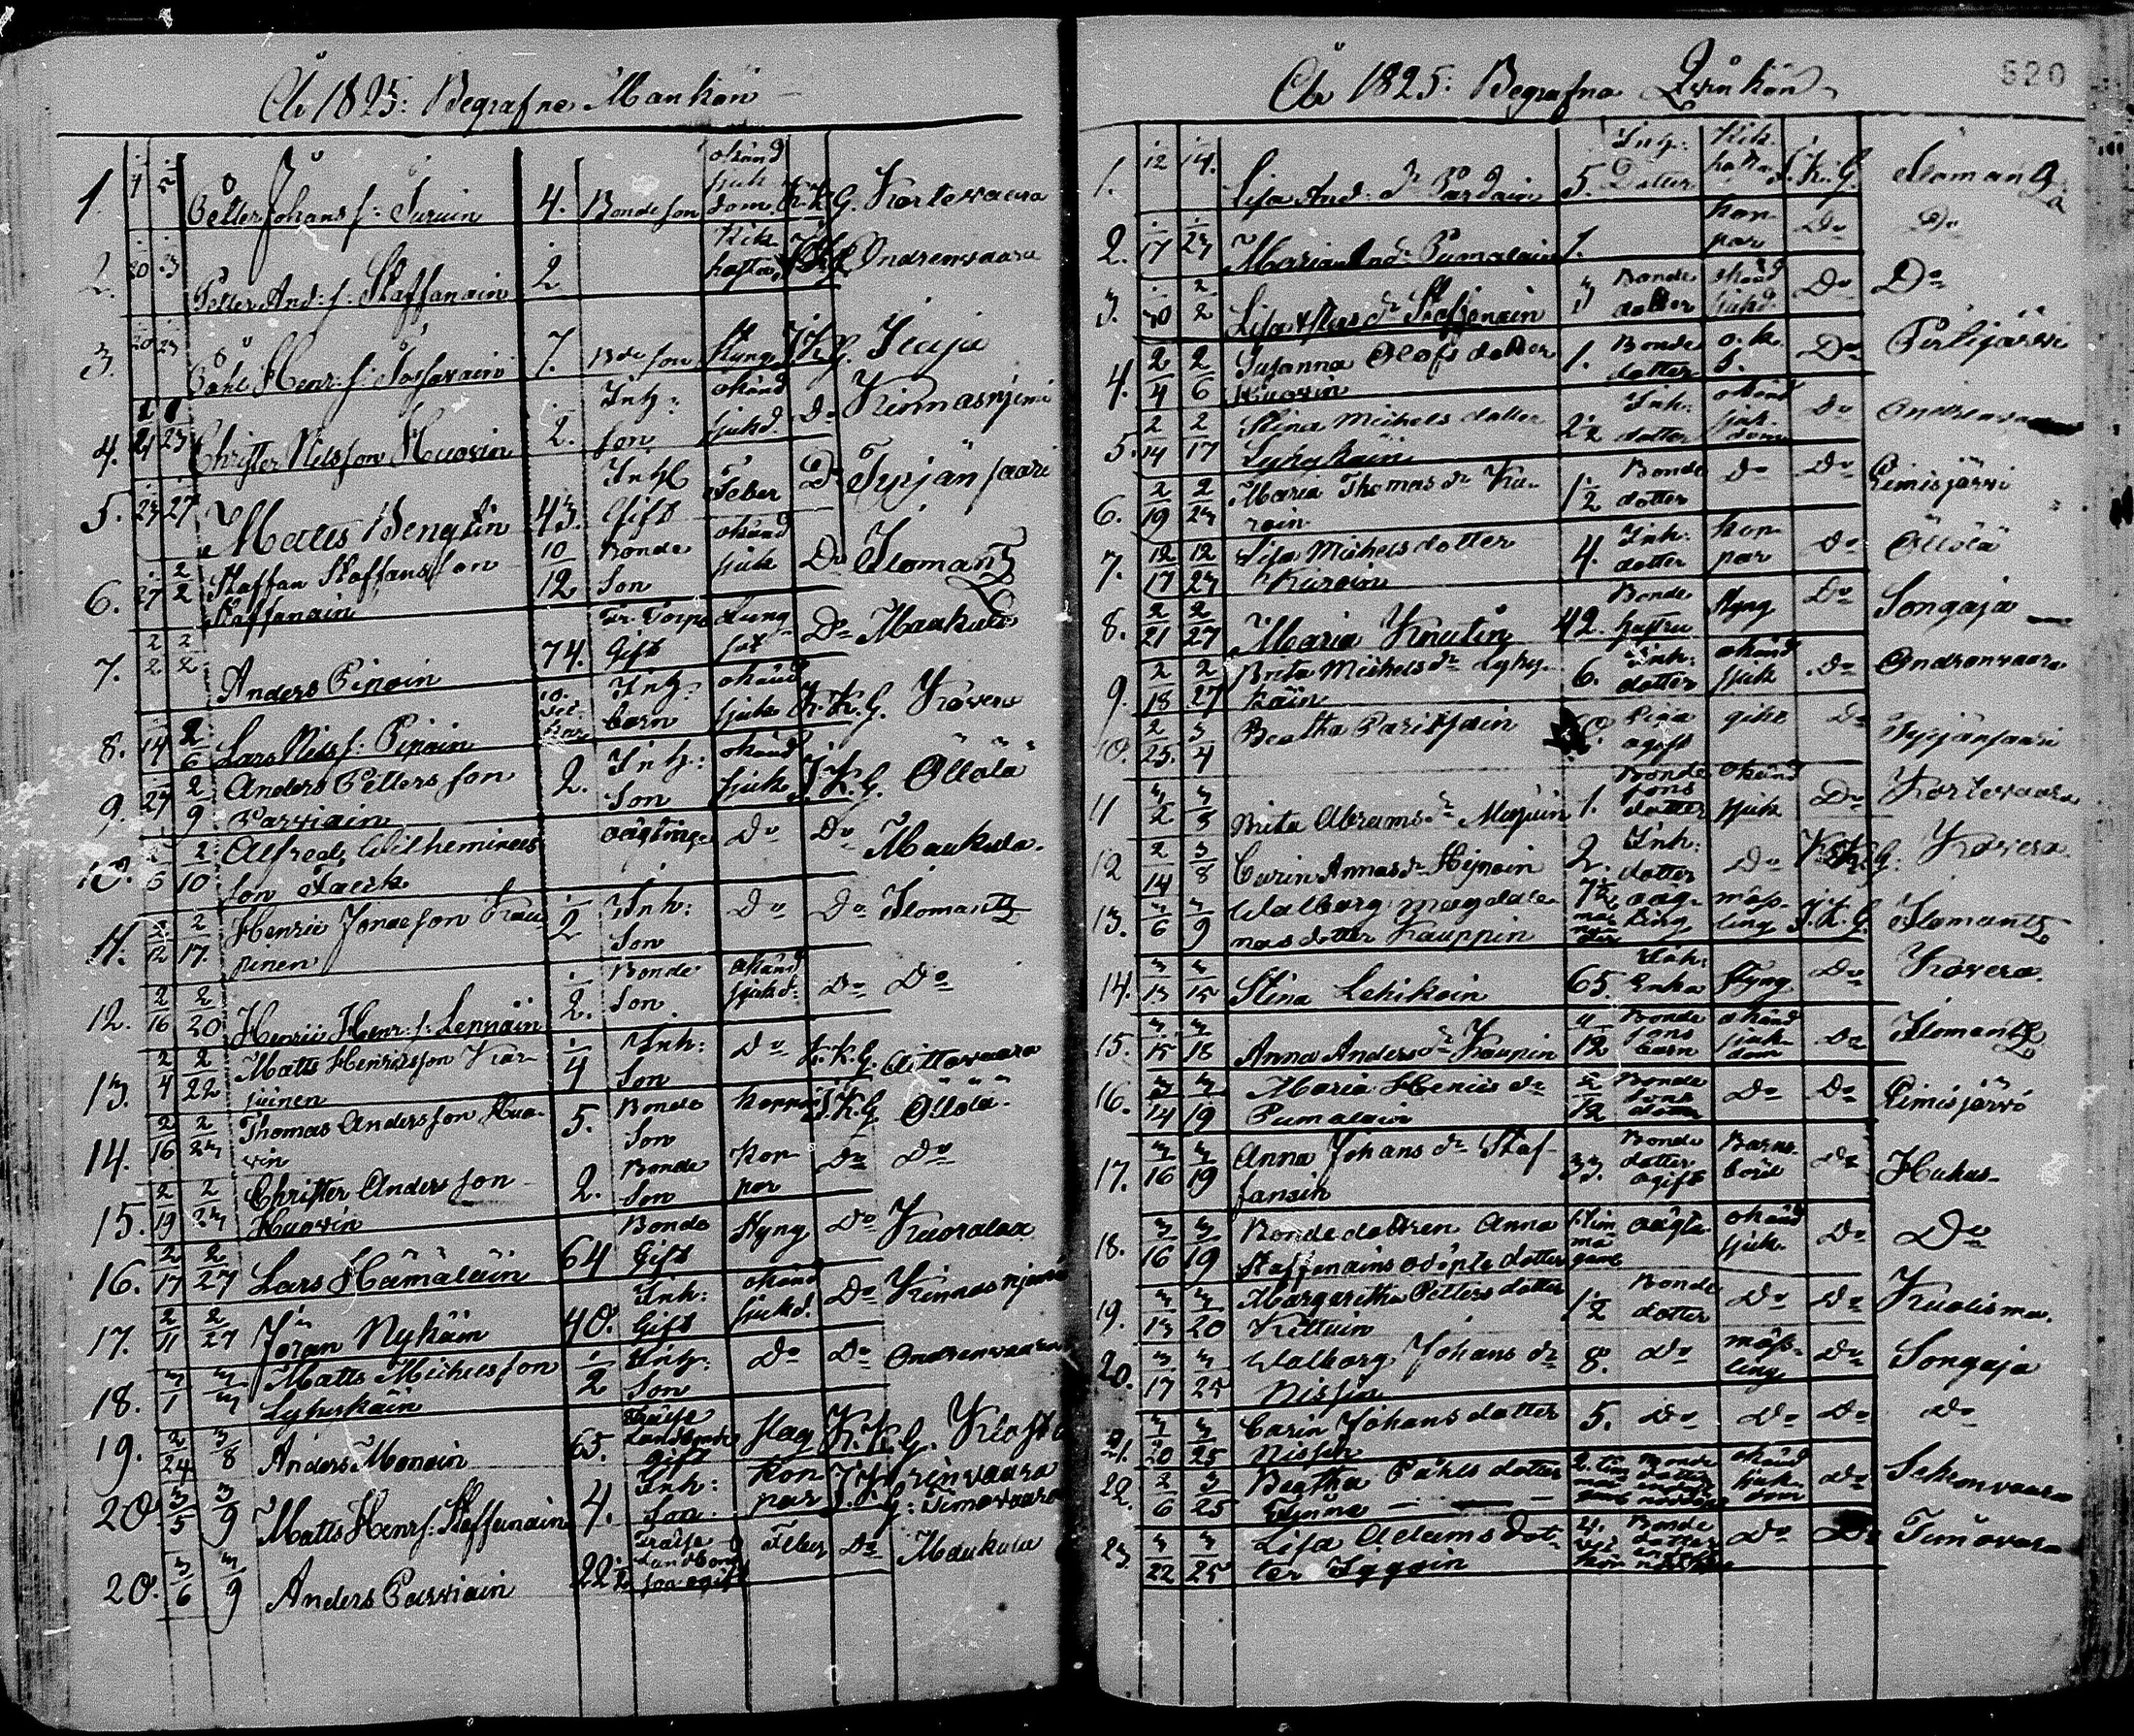 År 1825: Begrafne Mankön
1. 1/4 1/5 Petter Johans s: Turuin 4. Bonde son okänd sjukdom K.K.G. Kortevaara
2. 1/20 1/23 Petter And: s: Staffanain 1/2 Kikhosta Ondrenvaara
3. 1/20 1/23 Påhl Henr: s: 7. Bde son Styng I.K.G. Ilaja
4. 1/21 1/23 Christer Nilsson Huovin 1/2. Inh: son okänd sjukd. Do Kinnasnjemi
5. 1/23 1/27 Matts Bengtin 43. Inh: Gift Feber Do Tyrjänsaari
6. 1/27 2/2 Staffan Staffansson Staffanain 10/12 Bonde Son okänd sjuk Do Ilomantz
7. 2/2 2/2 Anders Piipoin 74. Gift Lungsot Do Maukula
8. 1/14 2/6 Lars Nils s: Pipoin 10. Inh: barn okänd sjuk K.K.G. Kovero
9. 1/27 2/9 Anders Petters son Parviain 2. Inh: Son okänd sjuk I.K.G. Öllölä
10. 2/6 2/10 Alfred Wilheminas son Falck oägting Do Do Maukula.
11. 2/12 2/17. Henric Jonasson Kauppinen 1/2 Inh: Son Do Do Ilomantz
12. 2/16 2/20 Henric Henr: s: Lennäin 1/2. Bonde Son okänd sjukd: Do Do
13. 2/4 2/22 Matts Henricsson Karjuinen 1/4 Inh: Son Do K.K.G. Aittovaara
14. 2/16 2/27 Thomas Andersson Huovin 5. Bonde Son Koppor I.K.G Öllölä
15. 2/19 2/27 Christer Andersson Huovin 2. Bonde Son Koppor Do Do
16. 2/17 2/27 Lars Hämäläin 64 Bonde Gift Styng Do Kuoralax
17. 2/11 2/27 Jöran Nykäin 40. Inh: Gift okänd sjukd. Do Kinnasnjemi
18. 3/1 3/3 Matts Michelsson Lyhykäin 1/2 Inh: Son Do Do Ondrenvaara
19. 2/24 3/8 Anders Monoin 65. Landbonde gift slag K.K.G. Klosta
20. 3/5 3/9 Matts Henr s: Staffanain 4. Inh: Son. Koppor I.K.G: Timovaara
20. 3/6 3/9 Anders Parviain 22 1/2 Landbonde son ogift Feber Do Maukula
År 1825: Begrafna Qvinkön
520
1. 1/12 1/14. Lisa And: dr Pardain 5. Inh: Dotter Kikhosta I.K.G. Ilomantz
2. 1/17 1/23 Maria And: dr Pumalain 1. Koppor Do Do
3. 1/30 2/2 Lisa dr Staffanain 3 Bonde dotter okänd sjukd. Do Do
4. 2/4 2/6 Susanna Olofs dotter Huovin 1. Bonde dotter o.k. s. Do Pertijärvi
5. 2/14 2/17 Stina Michels dotter Lyhykäin 2 1/2 Inh: dotter okänd sjukdom Do
6. 2/19 2/23 Maria Thomas dr 1 1/2 Bonde dotter Do Do Liimisjärvi
7. 12/17 12/23 Lisa Michelsdotter Kuroin 4. Inh: dotter Koppor Do Öllölä
8. 2/21 2/27 Maria Knutin 42. Bonde hustru Styng Do Songaja
9. 2/18 2/27 Brita Michels dr Lyhykäin 6. Inh: dotter okänd sjuk Do Ondronvaara
10. 2/25. 3/4 Beatha Pariskain Piga ogift gikt Do Tyrjänsaari
11 3/2 3/5 Brita Abrams dr 1. Bonde sons dotter okänd sjuk Do Kortevaara
12 2/14 3/8 Carin Annas dr Hijroin 2. Inh: dotter Do K.K.G. Kovero.
13. 3/6 3/9 Walborg Magdalenas dotter Kauppin 7 1/2 månader oägting mässling I.K.G. Ilomantz
14. 3/13 3/15 Stina Lehikoin 65. Inh: Enka Styng Do Kovero.
15. 3/15 3/18 Anna Anders dr Kaupin 4/12 Bonde sons barn okänd sjukdom Do Ilomantz
16. 3/14 3/19 Maria Henrics dr Pumalain 5/12 Bonde sons dotter Do Do Liimisjärvi
17. 3/16 3/19 Anna Johans dr Staffanain 33. Bonde dotter ogift Barnsbörd Do Hukas
18. 3/16 3/19 Bondedottren Anna Staffanains odöpte dotter 1 timma gaml oägta okänd sjuk. Do Do
19. 3/13 3/20 Margaretha Petters dotter Kettuin 1 1/2 Bonde dotter Do Do Kuolisma.
20. 3/17 3/25 Walborg Johans dr Nissin 8. Do mässling Do Songaja
21. 3/20 3/25 Carin Johans dotter Nissin 5. Do Do Do Do
22. 2/6 3/25 Beatha Påhls dotter 2 tim Bonde dotter okänd sjukdom Do Sehonvaara
23. 3/22 3/25 Lisa Adams dotter Iggoin Bonde dotter Do Do